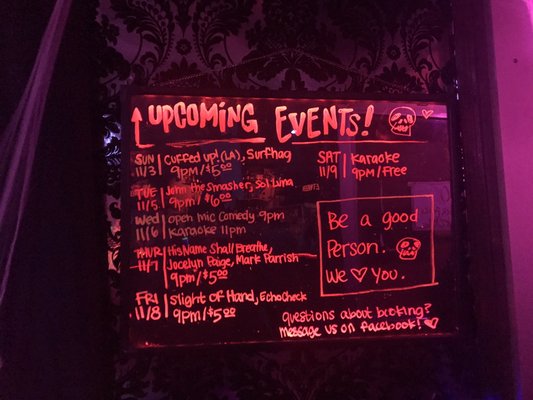 UPCOMING EVENTS!
SUN 11/3 Cuffed up! (LA), Surfhag
9pm/$5.00
TUE 11/5 John the Smasher, Sol Luna
9pm/$6.00
Wed 11/6 open mic Comedy 9pm
Karaoke 11pm
THUR 11/7 His Name Shall Breathe,
Jocelyn Paige, Mark Parrish
9pm/$5.00
FRI 11/8 Slight of Hand, EchoCheck
9pm/$5.00
SAT 11/9 Karaoke
9PM/Free
Be a good
Person.
We ♡ You.
questions about booking?
message us on facebook!